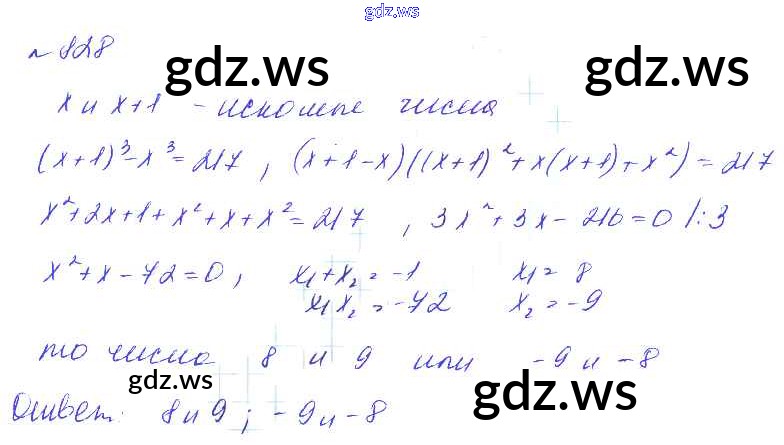 gdz.ws
№ 828
gdz.ws gdz.ws
x и x+1 - искомые числа
(x+1)³-x³=217, (x+1-x)((x+1)²+x(x+1)+x²)=217
x²+2x+1+x²+x+x²=217, 3x²+3x-216=0 /:3
x²+x-72=0, x₁+x₂=-1 x₁=8
x₁x₂=-72 x₂=-9
то числа 8 и 9 или -9 и -8
gdz.ws gdz.ws
Ответ: 8 и 9; -9 и -8